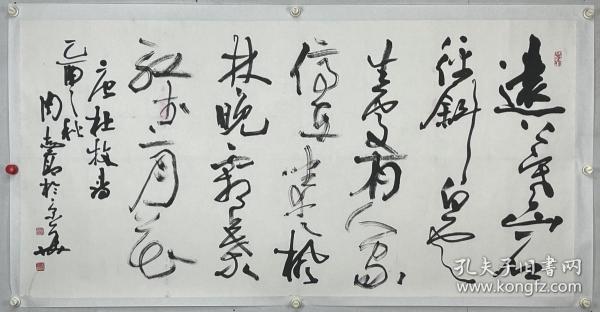 遠上寒山石
径斜白雲
生處有人家
停車坐愛楓
林晚霜葉
紅於二月花
唐杜牧詩
乙酉之秋
周志高於
孔夫子旧书网
www.kongfz.com